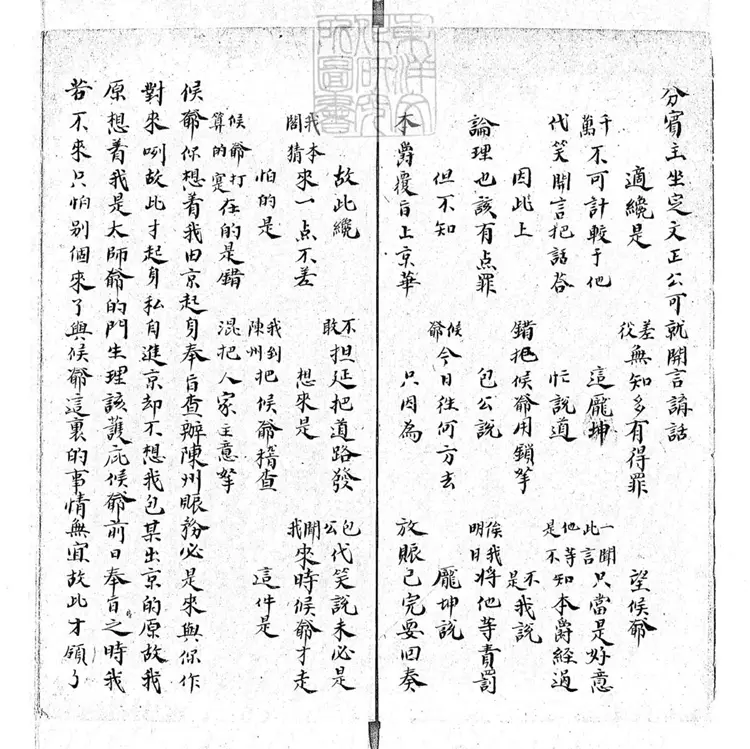 東洋文化研究所圖書
分賓主坐定文正公可就開言講話
適纔是 差役無知多有得罪 望候爺
千萬不可計較于他 這龎坤 一聞此言只當是好意
代笑開言把話答 忙說道 他等是不知本爵經過
因此上 錯把候爺用鎖拏 不是我說
論理也該有点罪 包公說 俟我明日將他等責罰
但不知 候爺今日往何方去 龎坤說
本爵覆旨上京華 只因為 放賑已完要回奏
故此纔 不敢担延把道路發 包公代笑說未必是
我本閤猜來一点不差 想來是 聞我來時候爺才走
怕的是 我到陳州把候爺稽查 這件是
候爺打算的寔在的是錯 混把人家主意拏
候爺你想着我由京起身奉旨查辦陳州賑務必是來與你作
對來咧故此才起身私自進京却不想我包某出京的原故我
原想着我是大師爺的門生理該護庇候爺前日奉旨之時我
若不來只怕别個來了與候爺這裏的事情無宜故此才領了